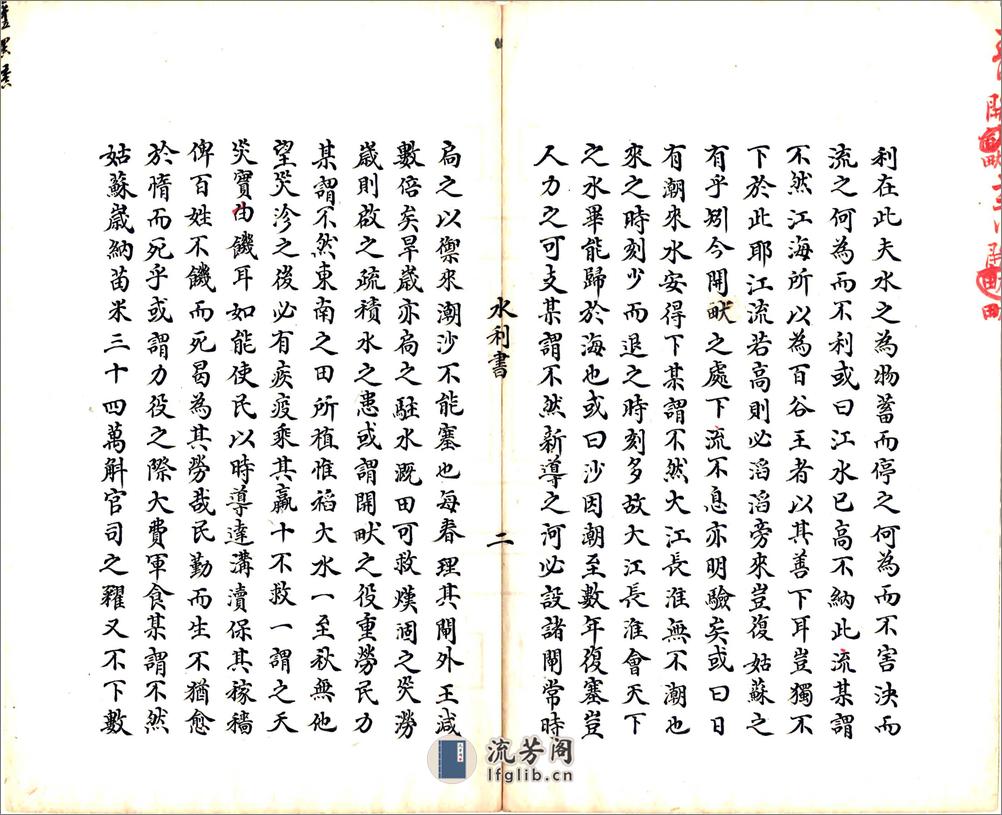 利在此夫水之為物蓄而停之何為而不害決而
流之何為而不利或曰江水已高不納此流某謂
不然江海所以為百谷王者以其善下耳豈獨不
下於此耶江流若高則必滔滔旁來豈復姑蘇之
有乎矧今開畎之處下流不息亦明驗矣或曰日
有潮來水安得下某謂不然大江長淮無不潮也
來之時刻少而退之時刻多故大江長淮會天下
之水畢能歸於海也或曰沙因潮至數年復塞豈
人力之可支某謂不然新導之河必設諸閘常時
水利書
二
扃之以禦來潮沙不能塞也每春理其閘外王減
數倍矣旱歲亦扃之駐水溉田可救熯涸之災澇
歲則啟之疏積水之患或謂開畎之役重勞民力
某謂不然東南之田所植惟稻大水一至秋無他
望災沴之後必有疾疫乘其羸十不救一謂之天
災實由饑耳如能使民以時導達溝瀆保其稼穡
俾百姓不饑而死曷為其勞哉民勤而生不猶愈
於惰而死乎或謂力役之際大費軍食某謂不然
姑蘇歲納苗米三十四萬斛官司之糴又不下數
開畎
流芳阁
lfglib.cn